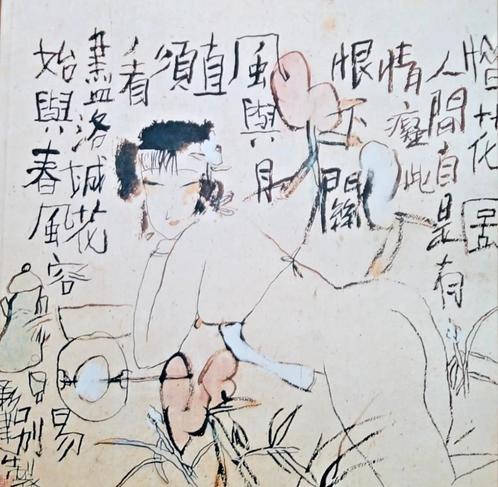 人間自是有
情癡此
恨不關
風與月
直
須
看
盡洛城花
始與春風容
易
別